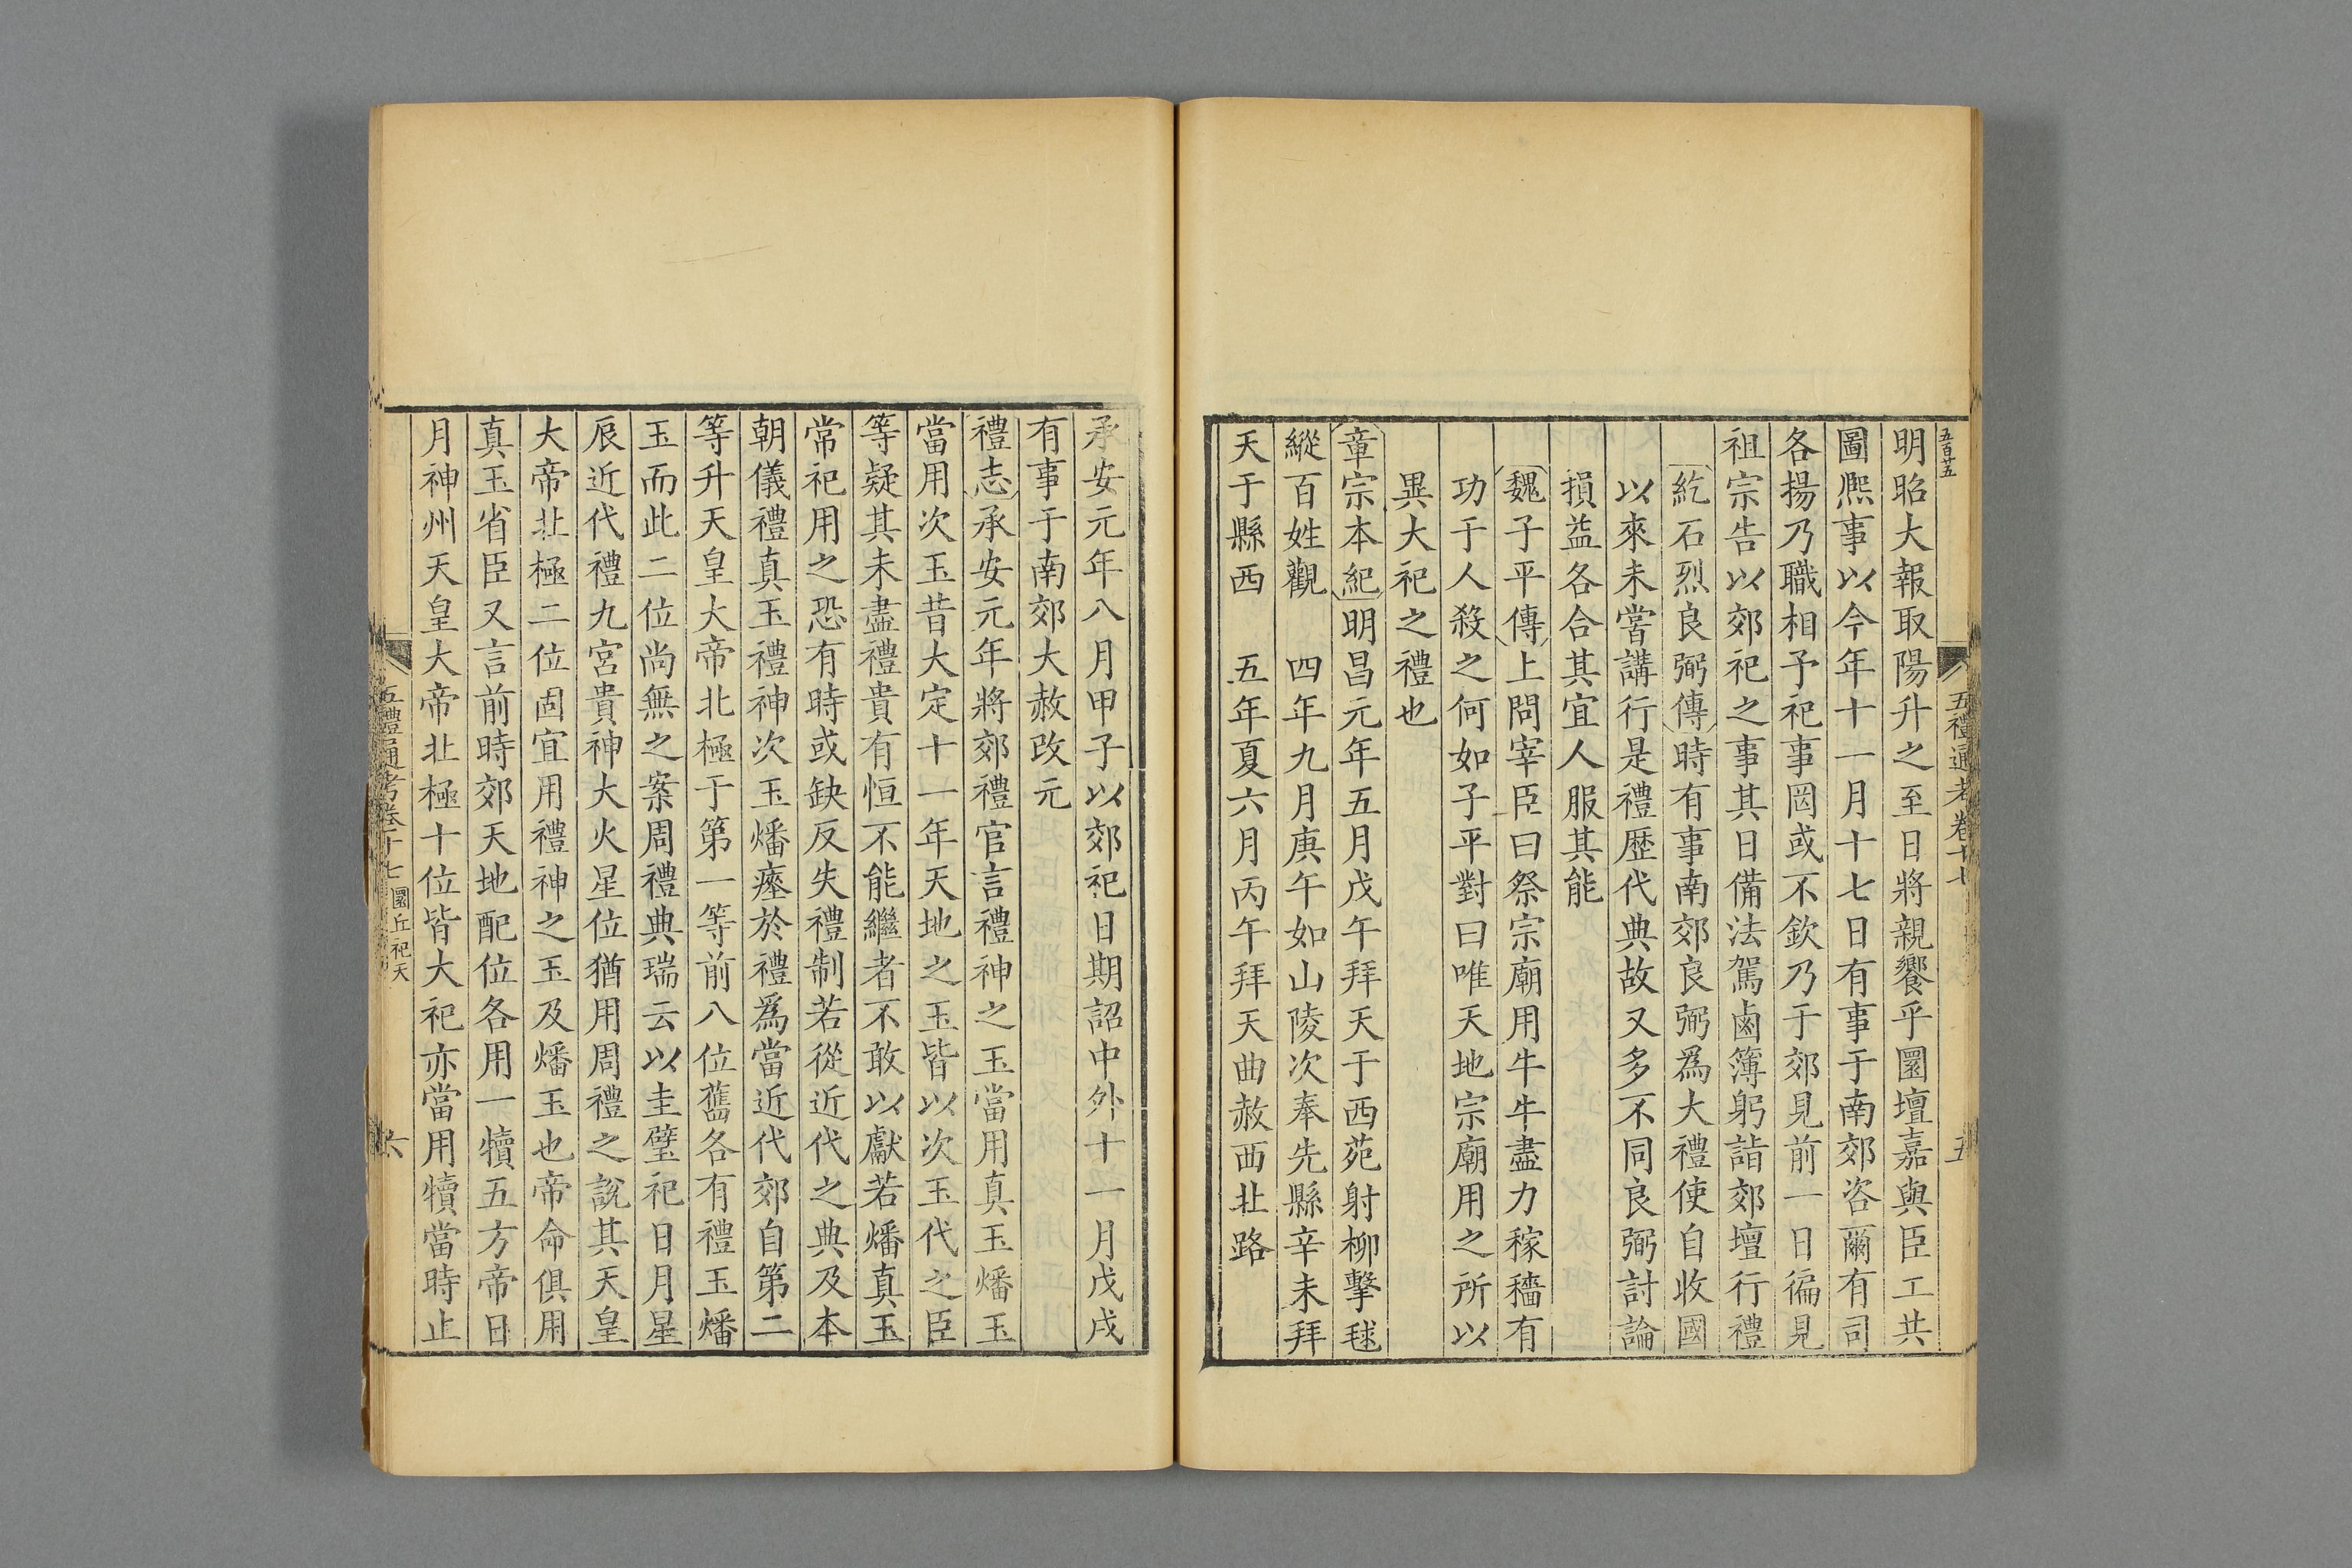 五百廿五
五禮通考卷十七
五
明昭大報取陽升之至日將親饗乎圜壇嘉與臣工共
圖熈事以今年十一月十七日有事于南郊咨爾有司
各揚乃職相予祀事罔或不欽乃于郊見前一日徧見
祖宗告以郊祀之事其日備法駕鹵簿躬詣郊壇行禮
紇石烈良弼傳時有事南郊良弼爲大禮使自收國
以來未嘗講行是禮歷代典故又多不同良弼討論
損益各合其宜人服其能
魏子平傳上問宰臣曰祭宗廟用牛牛盡力稼穡有
功于人殺之何如子平對曰唯天地宗廟用之所以
異大祀之禮也
章宗本紀明昌元年五月戊午拜天于西苑射柳擊毬
縱百姓觀　四年九月庚午如山陵次奉先縣辛未拜
天于縣西　五年夏六月丙午拜天曲赦西北路
承安元年八月甲子以郊祀日期詔中外十一月戊戌
有事于南郊大赦改元
禮志承安元年將郊禮官言禮神之玉當用真玉燔玉
當用次玉昔大定十一年天地之玉皆以次玉代之臣
等疑其未盡禮貴有恒不能繼者不敢以獻若燔真玉
常祀用之恐有時或缺反失禮制若從近代之典及本
朝儀禮真玉禮神次玉燔瘞於禮爲當近代郊自第二
等升天皇大帝北極于第一等前八位舊各有禮玉燔
玉而此二位尚無之案周禮典瑞云以圭璧祀日月星
辰近代禮九宮貴神大火星位猶用周禮之說其天皇
大帝北極二位固宜用禮神之玉及燔玉也帝命俱用
真玉省臣又言前時郊天地配位各用一犢五方帝日
月神州天皇大帝北極十位皆大祀亦當用犢當時止
五禮通考卷十七　圜丘祀天
六